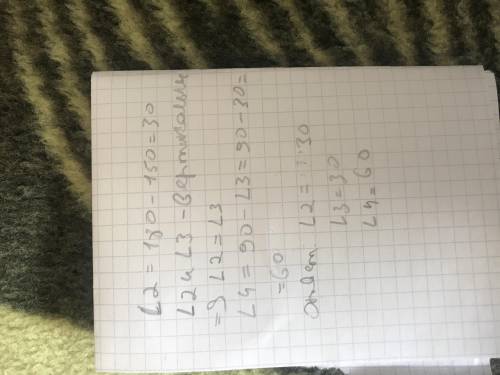 ∠2 = 180 - 150 = 30
∠2 и ∠3 - вертикальные
=> ∠2 = ∠3
∠4 = 90 - ∠3 = 90 - 30 =
= 60
Ответ ∠2 = 30
∠3 = 30
∠4 = 60